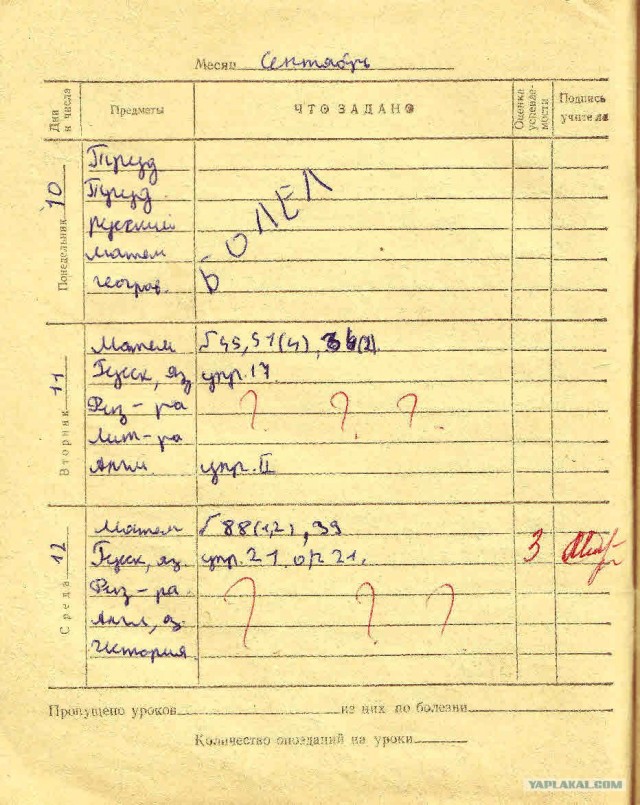 Месяц Сентябрь
Дни и числа Предметы ЧТО ЗАДАНО Оценка успеваемости Подпись учителя
Понедельник 10
Труд
Труд
русский
матем
географ.
БОЛЕЛ
Вторник 11
Матем √45, 51(4),
Русск, яз упр. 17
Физ-ра ? ? ?
Лит-ра
Англ. упр. II
Среда 12
Матем √88(1,2), 39
Русск, яз. упр. 21 стр 21. 3
Физ-ра ? ? ?
Англ, яз.
История
Пропущено уроков из них по болезни
Количество опозданий на уроки
YAPLAKAL.COM